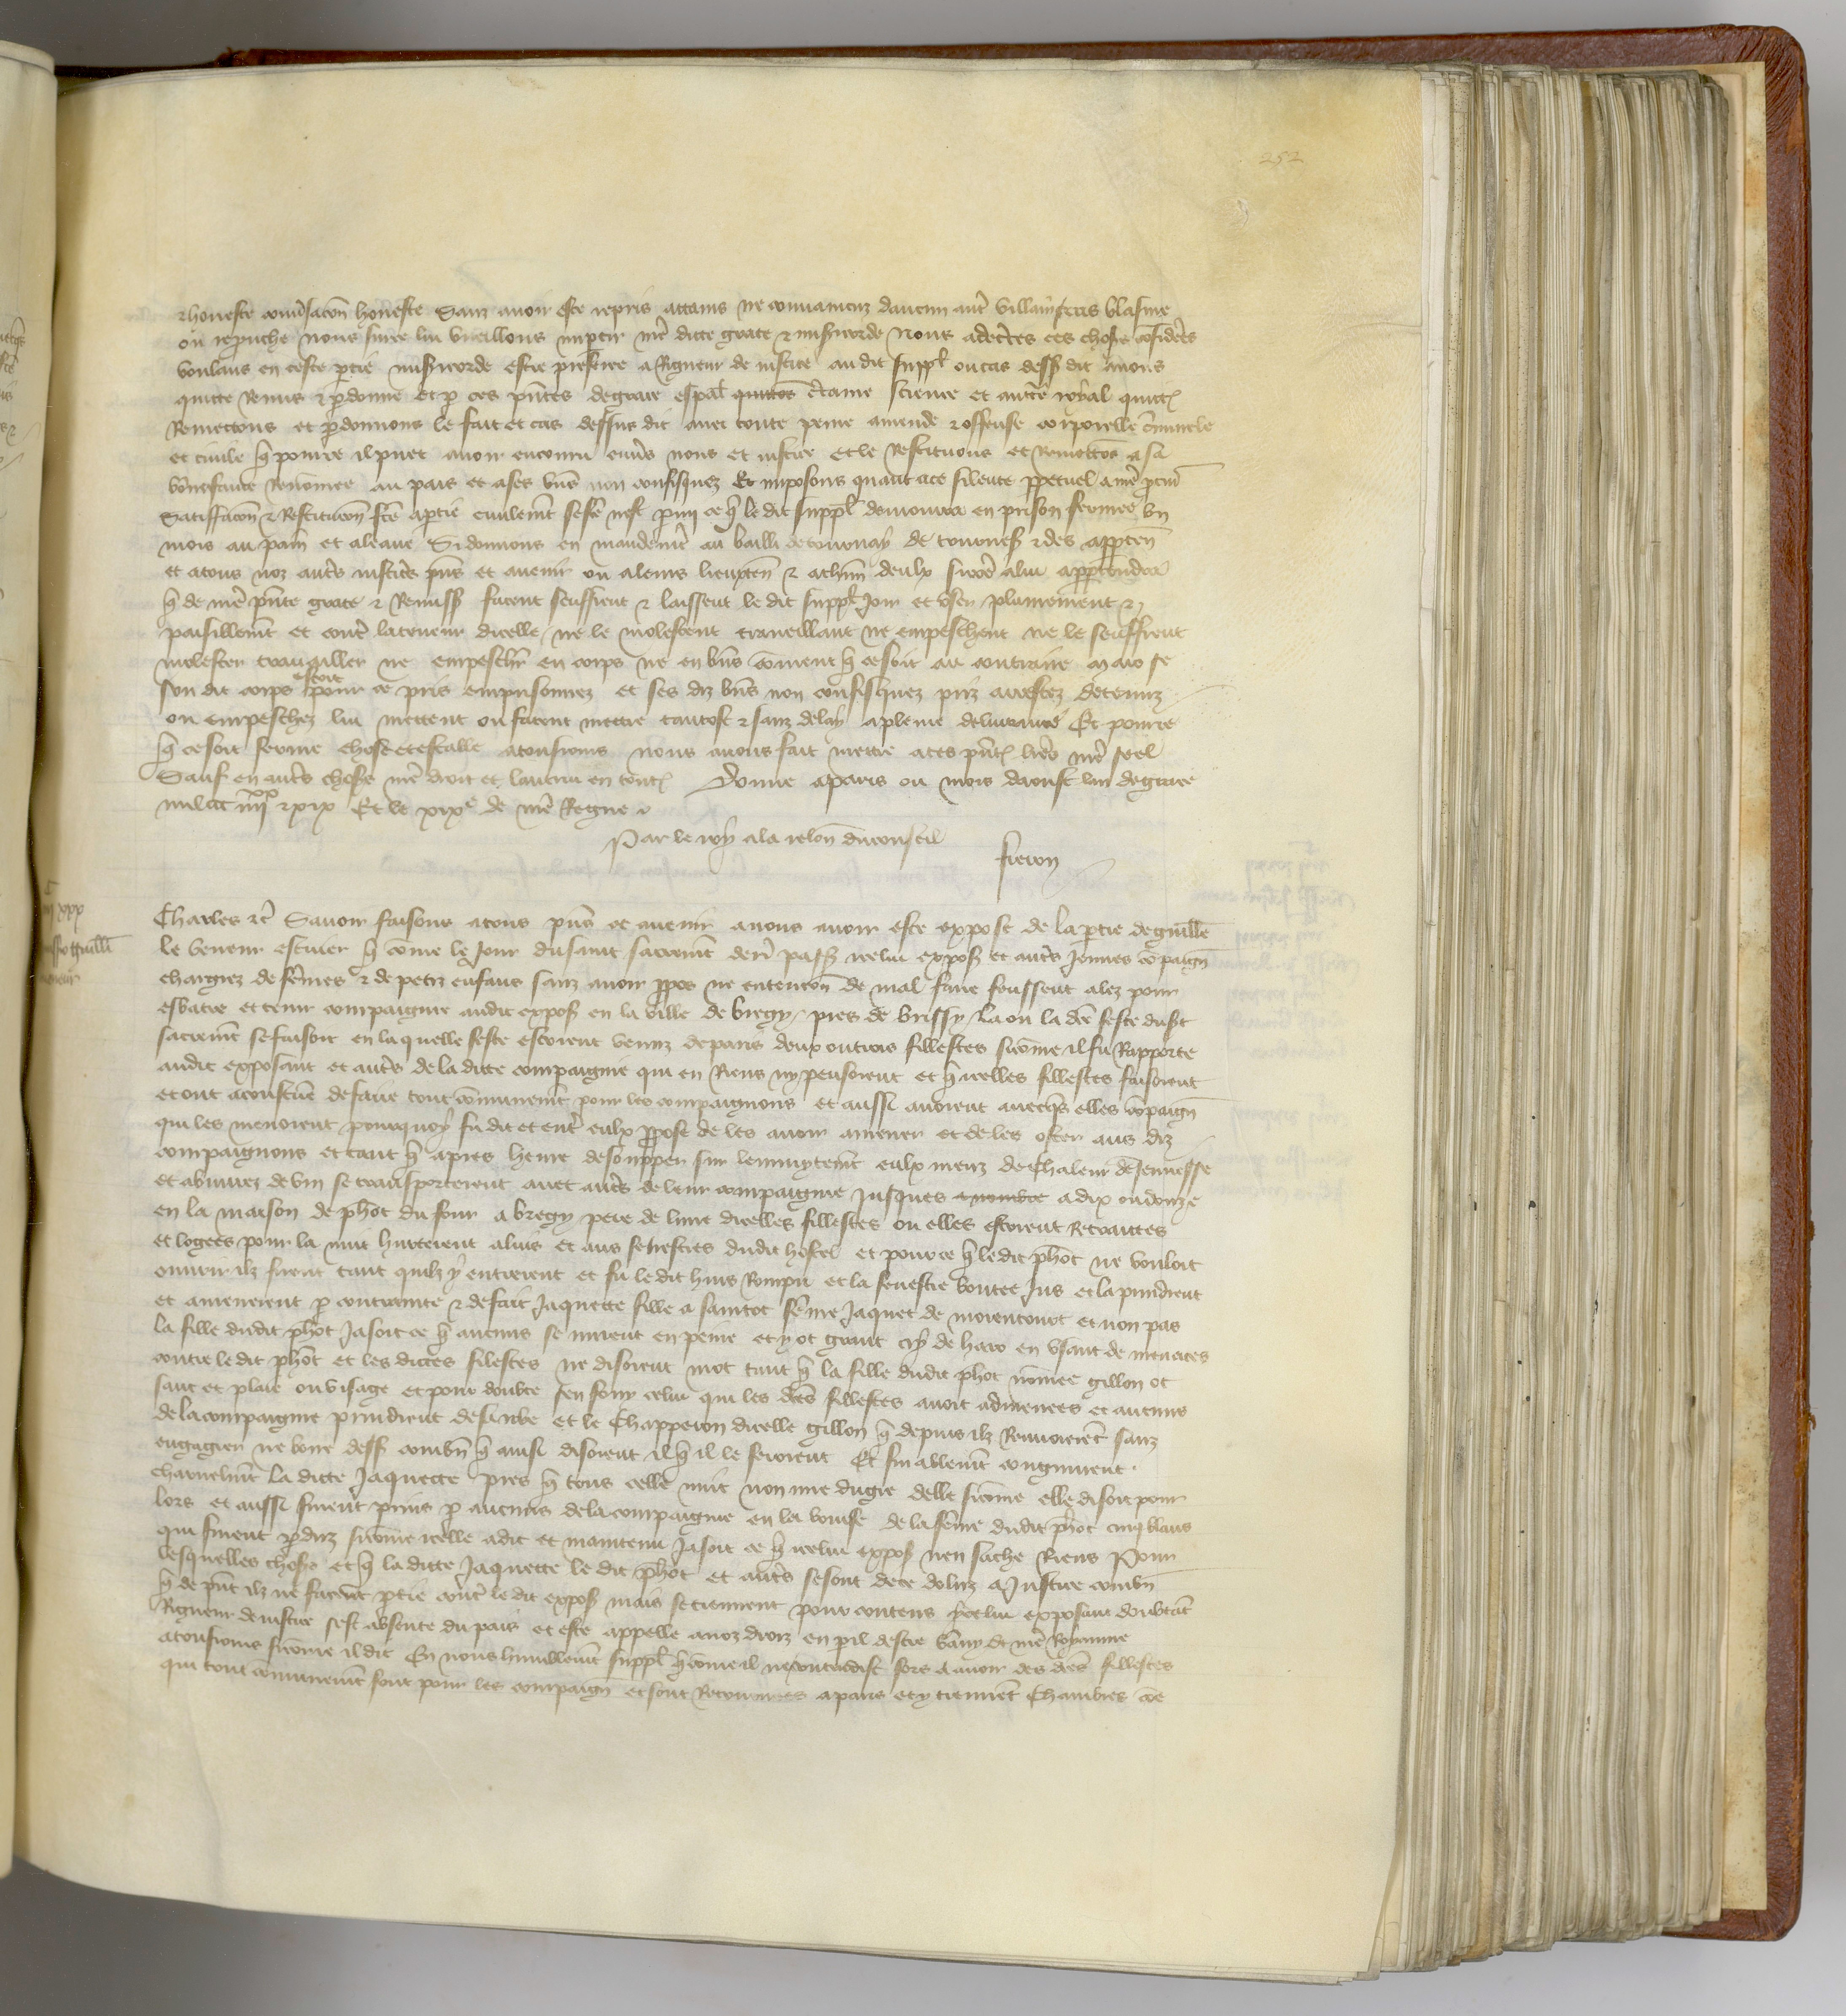 252
et honeste conversacion honeste Sanz avoir este repris attains ne convaincuz daucun autre villain cas blasme
ou repruche nous sur ce lui vueillons impartir nre dicte grace et misericorde Nous adecertes ces choses considerees
voulans en ceste partie misericorde estre preferee a Rigueur de justice au dit suppl ou cas dessus dit avons
quitte Remis et pardonne et par ces pntes de grace espal certaine science et auctorite royal quictons
Remectons et pardonnons le fait et cas dessus dit avec toute peine amende et offense corporelle criminele
et civile que pour ce il puet avoir encouru envers nous et justice et le Restituons et Remectons a sa
bonne fame Renommee au pais et a ses biens non confisquez Et imposons quant a ce silence perpetuel a nre procureur
Satisfacion et Restitucion fce a partie civilement se fce nest parmi ce que le dit suppl demourra en prison fermee un
mois au pain et a leaue Si donnons en mandement au bailli de tournay de
et a touz noz autres justiciers pns et avenir ou a leurs lieuxten et a chun deulx si comme a lui appartendra
que de nre pnte grace et Remiss facent seuffrent et laissent le dit suppl joir et user plainement et
paisiblement et contre la teneur dicelle ne le molestent travaillent ne empeschent ne le seuffrent
molester travaillier ne empeschier en corps ne en biens comment que ce soit au contraire mais se
son dit corps estoit pour ce pris emprisonnez et ses diz biens non confisquez priz arrestez detenuz
ou empeschez lui mettent ou facent mettre tantost et sanz delay a pleine delivrance Et pour ce
que ce soit ferme chose et estable a tousjours nous avons fait mettre a ces pntes lres nre seel
Sauf en autres choses nre droit et lautrui en toutes Donne a paris ou mois daoust lan de grace
mil ccc iiii xx et xix Et le xixe de nre Regne
Par le roy a la relon du conseil
freron
Charles etc Savoir faisons a touz pns et avenir a nous avoir este expose de la partie de guille
le veneur escuier que comme le jour du saint sacrement derr passe icelui expos et autres jeunes compaign
chargiez de femmes et de petiz enfans sanz avoir propos ne entencion de mal faire feussent alez pour
esbatre et tenir compaignie audit expos en la ville de bregy pres de brissy la ou la dce feste du st
sacrement se faisoit en la quelle feste estoient venuz de paris deux ou trois fillestes si comme il fu Rapporte
audit exposant et autres de la dicte compaignie qui en Riens ny pensoient et que icelles fillestes faisoient
et ont acoustume de faire tout communement pour les compaignons et aussi avoient avecques elles compaign
qui les menoient pourquoy fu dit et entre eulx propose de les avoir amener et de les oster aus diz
compaignons et tant que apres heure de soupper sur lanuytement eulx meuz de chaleur de jeunesse
et abuvrez de vin se transporterent avec autres de leur compaignie jusques au nombre a dix ou douze
en la maison de phot du four a bregy pere de lune dicelles fillestes ou elles estoient Retraittes
et logees pour la nuit hurterent a luis et aus fenestres dudit hostel et pour ce que le dit phot ne vouloit
ouvrir ilz firent tant quilz y entrerent et fu le dit huis Rompu et la fenestre boutee jus et la prindrent
et amenerent par contrainte et de fait jaquette fille a saintot femme jaquet de morencourt et non pas
la fille dudit phot ja soit ce que aucuns se mirent en peine et y ot grant cry de haro en usant de menaces
contre le dit phot et les dictes filestes ne disoient mot tant que la fille dudit phot nommee gillon ot
sanc et plaie ou visage et pour doubte sen fouy celui qui les dces fillestes avoit admenees et aucuns
de la compaignie prindrent de sa robe et le Chapperon dicelle gillon que depuis ilz Renvoierent sanz
engagier ne boire dess combn que ainsi disoient il que il le feroient Et finablement congnurent
charnelment la dicte jaquette pres que tous celle nuit non mie du gre delle si comme elle disoit pour
lors et aussi furent prins par aucuns de la compaignie en la bourse de la femme dudit phot cinq blans
qui furent perduz si comme icelle a dit et maintenu ja soit ce que icelui expos nen sache Riens Pour
lesquelles choses et que la dicte jaquette le dit phot et autres se sont de ce doluz a justice combn
que de pnt ilz ne facent partie contre le dit expos mais se tiennent pour contens icelui exposant doubtant
Rigueur de justice sest absente du pais et este appelle a noz droiz en peril destre banny de nre Royaume
a tousjours si comme il dit En nous humblement suppl que comme il ne contendist fors a avoir des dces fillestes
qui tout communement sont pour les compaign et sont Retournees a paris et y tiennent Chambres come